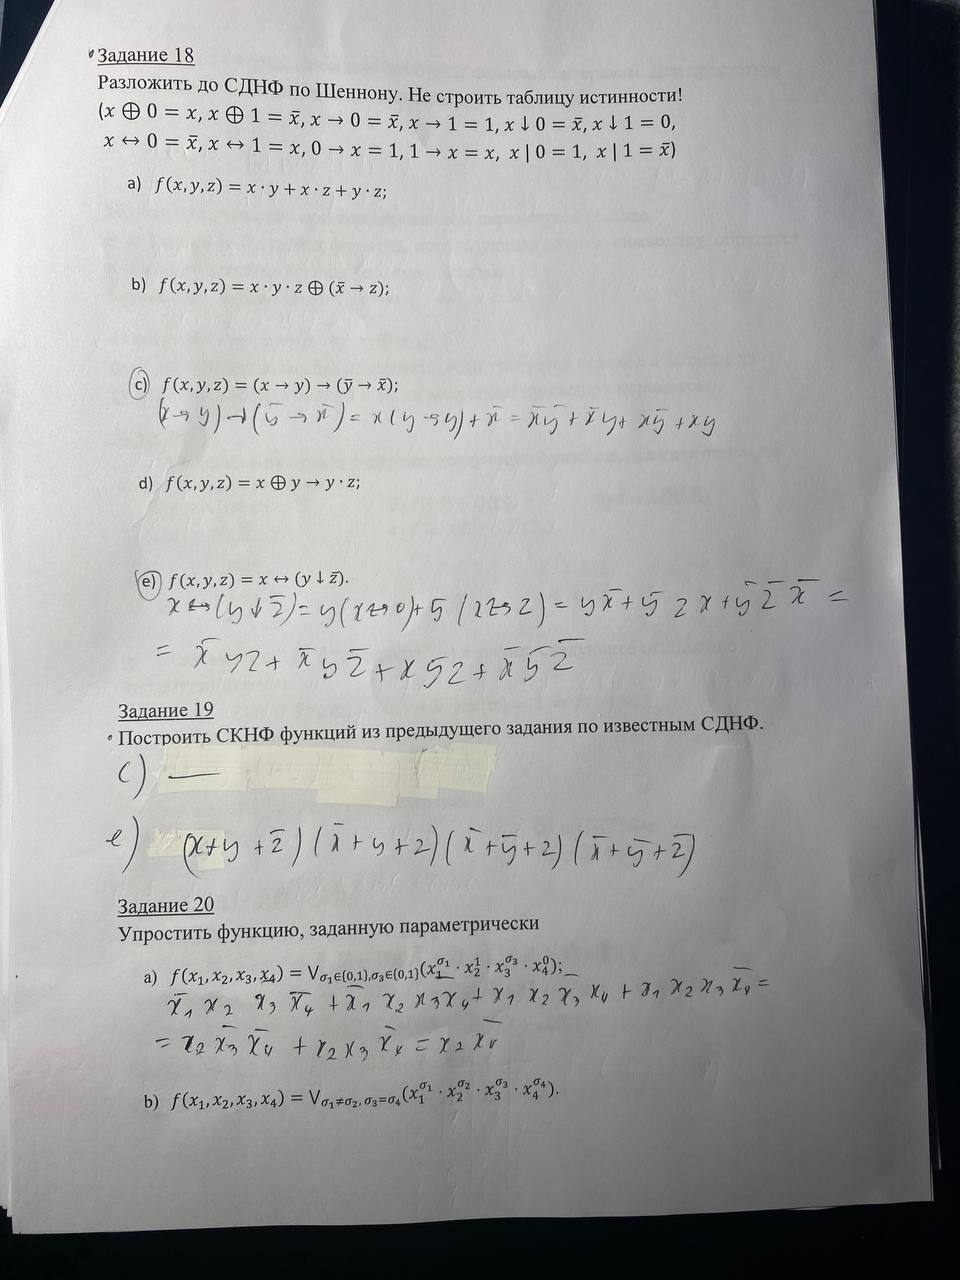 Задание 18
Разложить до СДНФ по Шеннону. Не строить таблицу истинности!
(x ⊕ 0 = x, x ⊕ 1 = x̄, x → 0 = x̄, x → 1 = 1, x ↓ 0 = x̄, x ↓ 1 = 0,
x ↔ 0 = x̄, x ↔ 1 = x, 0 → x = 1, 1 → x = x, x | 0 = 1, x | 1 = x̄)
a) f(x, y, z) = x · y + x · z + y · z;
b) f(x, y, z) = x · y · z ⊕ (x̄ → z);
c) f(x, y, z) = (x → y) → (ȳ → x̄);
(x → y) → (ȳ → x̄) = x(y → y) + x̄ = x̄ȳ + x̄y + xȳ + xy
d) f(x, y, z) = x ⊕ y → y · z;
e) f(x, y, z) = x ↔ (y ↓ z̄).
x ↔ (y ↓ z̄) = y(x ↔ 0) + ȳ(x ↔ z) = yx̄ + ȳzx + ȳz̄x̄ =
= x̄yz + x̄yz̄ + xȳz + x̄ȳz̄
Задание 19
Построить СКНФ функций из предыдущего задания по известным СДНФ.
c) —
e) (x + y + z̄)(x̄ + y + z)(x̄ + ȳ + z)(x̄ + ȳ + z̄)
Задание 20
Упростить функцию, заданную параметрически
a) f(x₁, x₂, x₃, x₄) = V_{σ₁∈{0,1},σ₃∈{0,1}}(x₁^{σ₁} · x₂^1 · x₃^{σ₃} · x₄^0);
x̄₁ x₂ x̄₃ x̄₄ + x̄₁ x₂ x₃ x̄₄ + x₁ x₂ x̄₃ x̄₄ + x₁ x₂ x₃ x̄₄ =
= x₂ x̄₃ x̄₄ + x₂ x₃ x̄₄ = x₂ x̄₄
b) f(x₁, x₂, x₃, x₄) = V_{σ₁≠σ₂, σ₃=σ₄}(x₁^{σ₁} · x₂^{σ₂} · x₃^{σ₃} · x₄^{σ₄}).